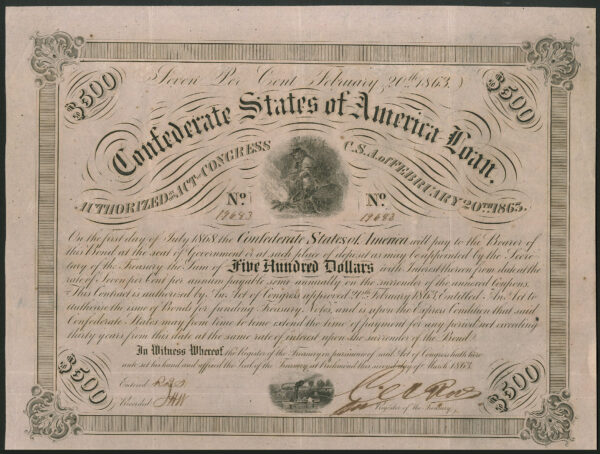 $500
Seven Per Cent February, 20th 1863.
$500
Confederate States of America Loan.
AUTHORIZED by ACT of CONGRESS C.S.A. of FEBRUARY 20TH 1863.
No. No.
12683
On the first day of July 1868 the Confederate States of America will pay to the Bearer of
this Bond at the seat of Government or at such place of deposit as may be appointed by the Secre-
tary of the Treasury the Sum of Five Hundred Dollars with Interest thereon from date at the
rate of Seven per Cent per annum payable semi annually on the surrender of the annexed Coupons.
This Contract is authorised by An Act of Congress approved 20th February 1863, Entitled "An Act to
authorise the issue of Bonds for funding Treasury Notes, and is upon the Express Condition that said
Confederate States may from time to time extend the time of payment for any period not exceeding
thirty years from this date at the same rate of interest upon the surrender of the Bond.
In Witness Whereof, the Register of the Treasury in pursuance of said Act of Congress hath here
unto set his hand and affixed the Seal of the Treasury at Richmond this second day of March 1863.
Entered
Recorded
Register of the Treasury.
$500
$500